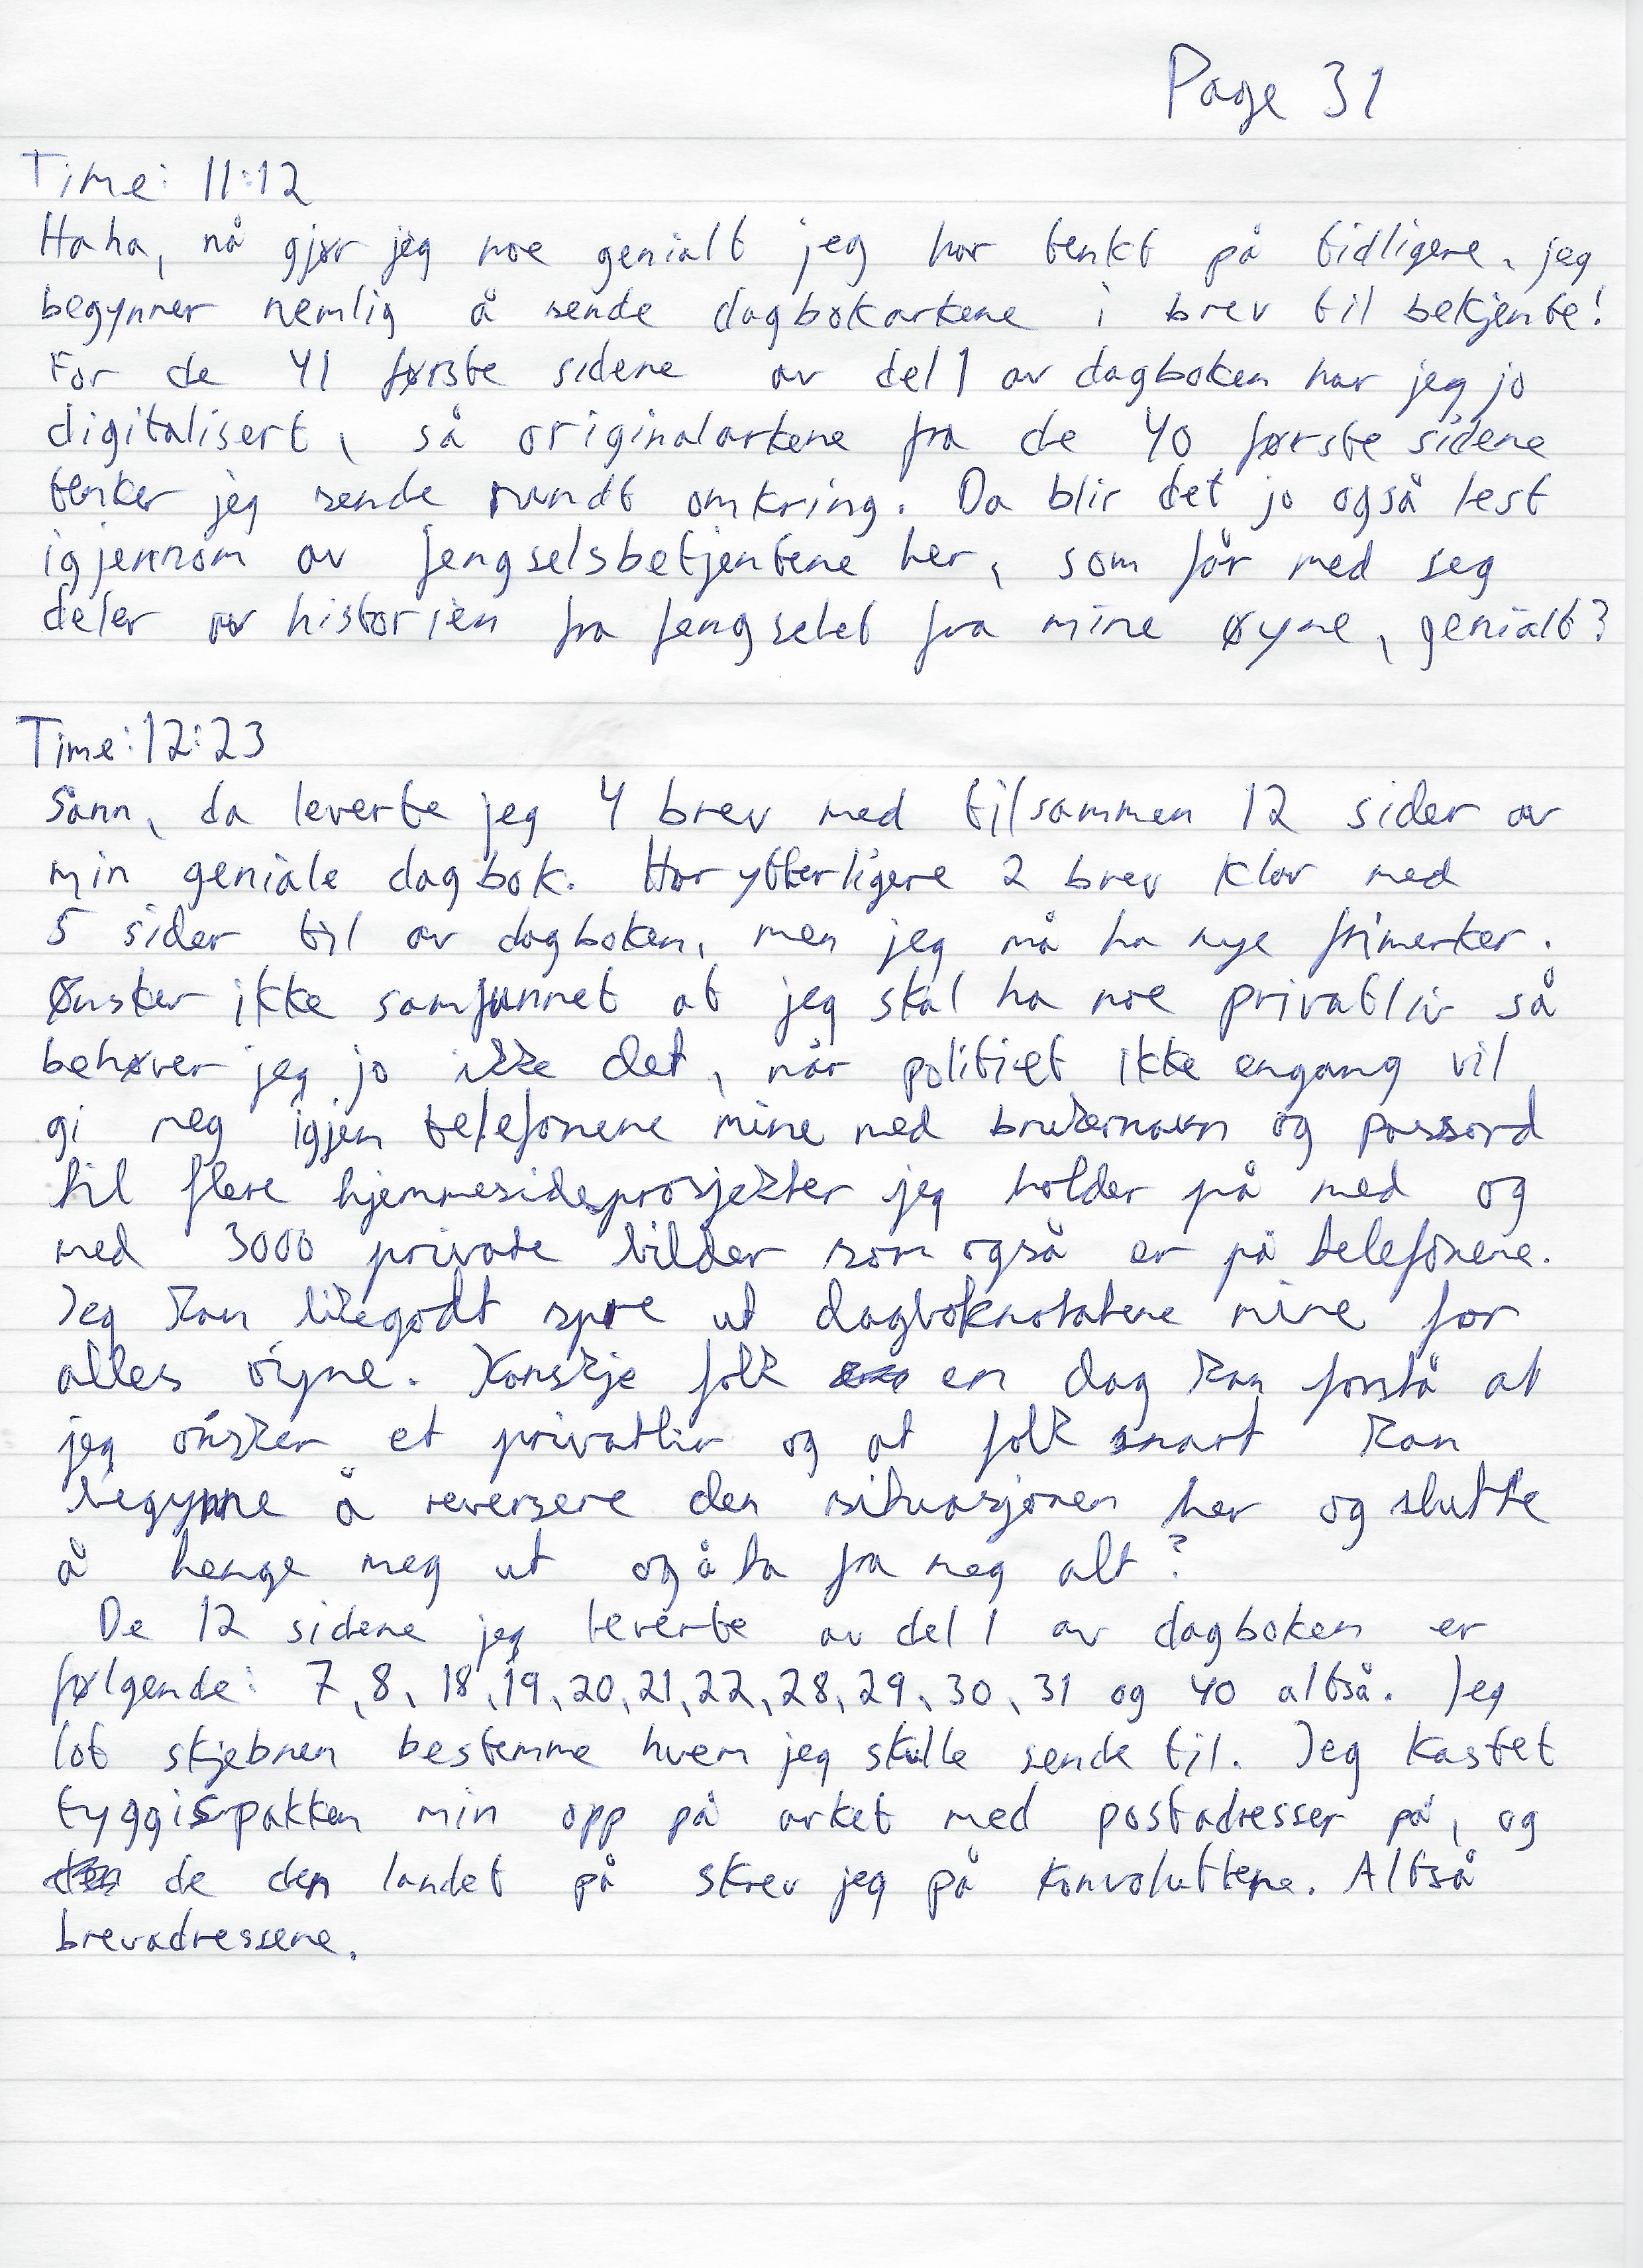 Page 31
Time: 11:12
Haha, nå gjør jeg noe genialt jeg har tenkt på tidligere, jeg
begynner nemlig å sende dagbokarkene i brev til bekjente!
For de 41 første sidene av del 1 av dagboken har jeg jo
digitalisert, så originalarkene fra de 40 første sidene
tenker jeg sende rundt omkring. Da blir det jo også lest
igjennom av fengselsbetjentene her, som får med seg
deler av historien fra fengselet fra mine øyne, genialt?
Time: 12:23
Sånn, da leverte jeg 4 brev med tilsammen 12 sider av
min geniale dagbok. Har ytterligere 2 brev klar med
5 sider til av dagboken, men jeg må ha nye frimerker.
Ønsker ikke samfunnet at jeg skal ha noe privatliv så
behøver jeg jo ikke det, når politiet ikke engang vil
gi meg igjen telefonene mine med brukernavn og passord
til flere hjemmesideprosjekter jeg holder på med og
med 3000 private bilder som også er på telefonene.
Jeg kan likegodt spre ut dagboknotatene mine for
alles øyne. Kanskje folk en dag kan forstå at
jeg ønsker et privatliv og at folk snart kan
begynne å reversere den situasjonen her og slutte
å henge meg ut og å ta fra meg alt?
De 12 sidene jeg leverte av del 1 av dagboken er
følgende: 7, 8, 18, 19, 20, 21, 22, 28, 29, 30, 31 og 40 altså. Jeg
lot skjebnen bestemme hvem jeg skulle sende til. Jeg kastet
tyggispakken min opp på arket med postadresser på, og
de den landet på skrev jeg på konvoluttene. Altså
brevadressene.